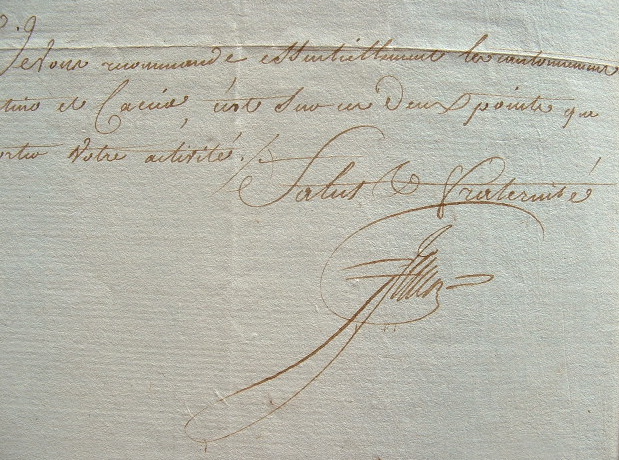 Je vous recommande essentiellement les cantonnement
et Caccia, c'est sur ces Deux points que
votre activité ./.
Salut & Fraternité